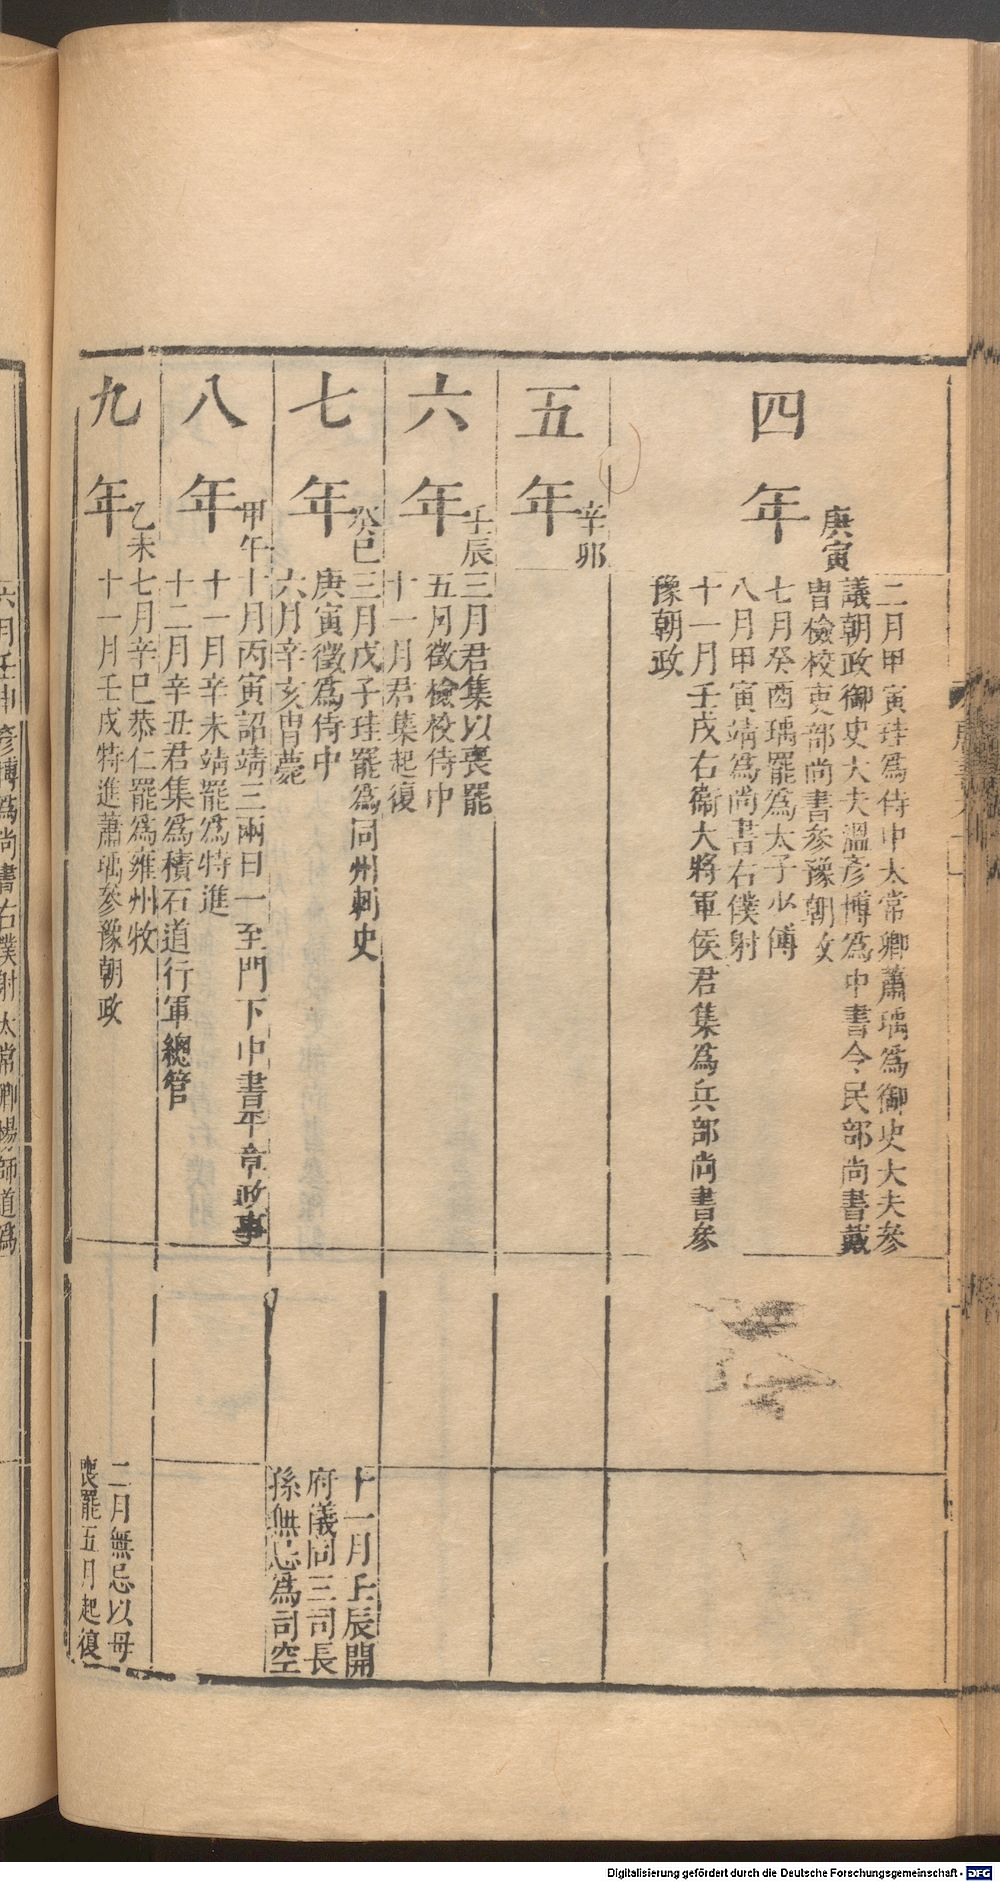 四年
庚寅
二月甲寅珪爲侍中太常卿蕭瑀爲御史大夫參
議朝政御史大夫溫彥博爲中書令民部尚書戴
胄檢校吏部尚書參豫朝政
七月癸酉瑀罷爲太子少傅
八月甲寅靖爲尚書右僕射
十一月壬戌右衞大將軍侯君集爲兵部尚書參
豫朝政
五年
辛卯
六年
壬辰
三月君集以喪罷
五月徵檢校侍中
十一月君集起復
七年
癸巳
三月戊子珪罷爲同州刺史
庚寅徵爲侍中
六月辛亥胄薨
十一月壬辰開
府儀同三司長
孫無忌爲司空
八年
甲午
十月丙寅詔靖三兩日一至門下中書平章政事
十一月辛未靖罷爲特進
十二月辛丑君集爲積石道行軍總管
九年
乙未
七月辛巳恭仁罷爲雍州牧
十一月壬戌特進蕭瑀參豫朝政
二月無忌以母
喪罷五月起復
六月壬申彥博爲尚書右僕射太常卿楊師道爲
Digitalisierung gefördert durch die Deutsche Forschungsgemeinschaft - DFG